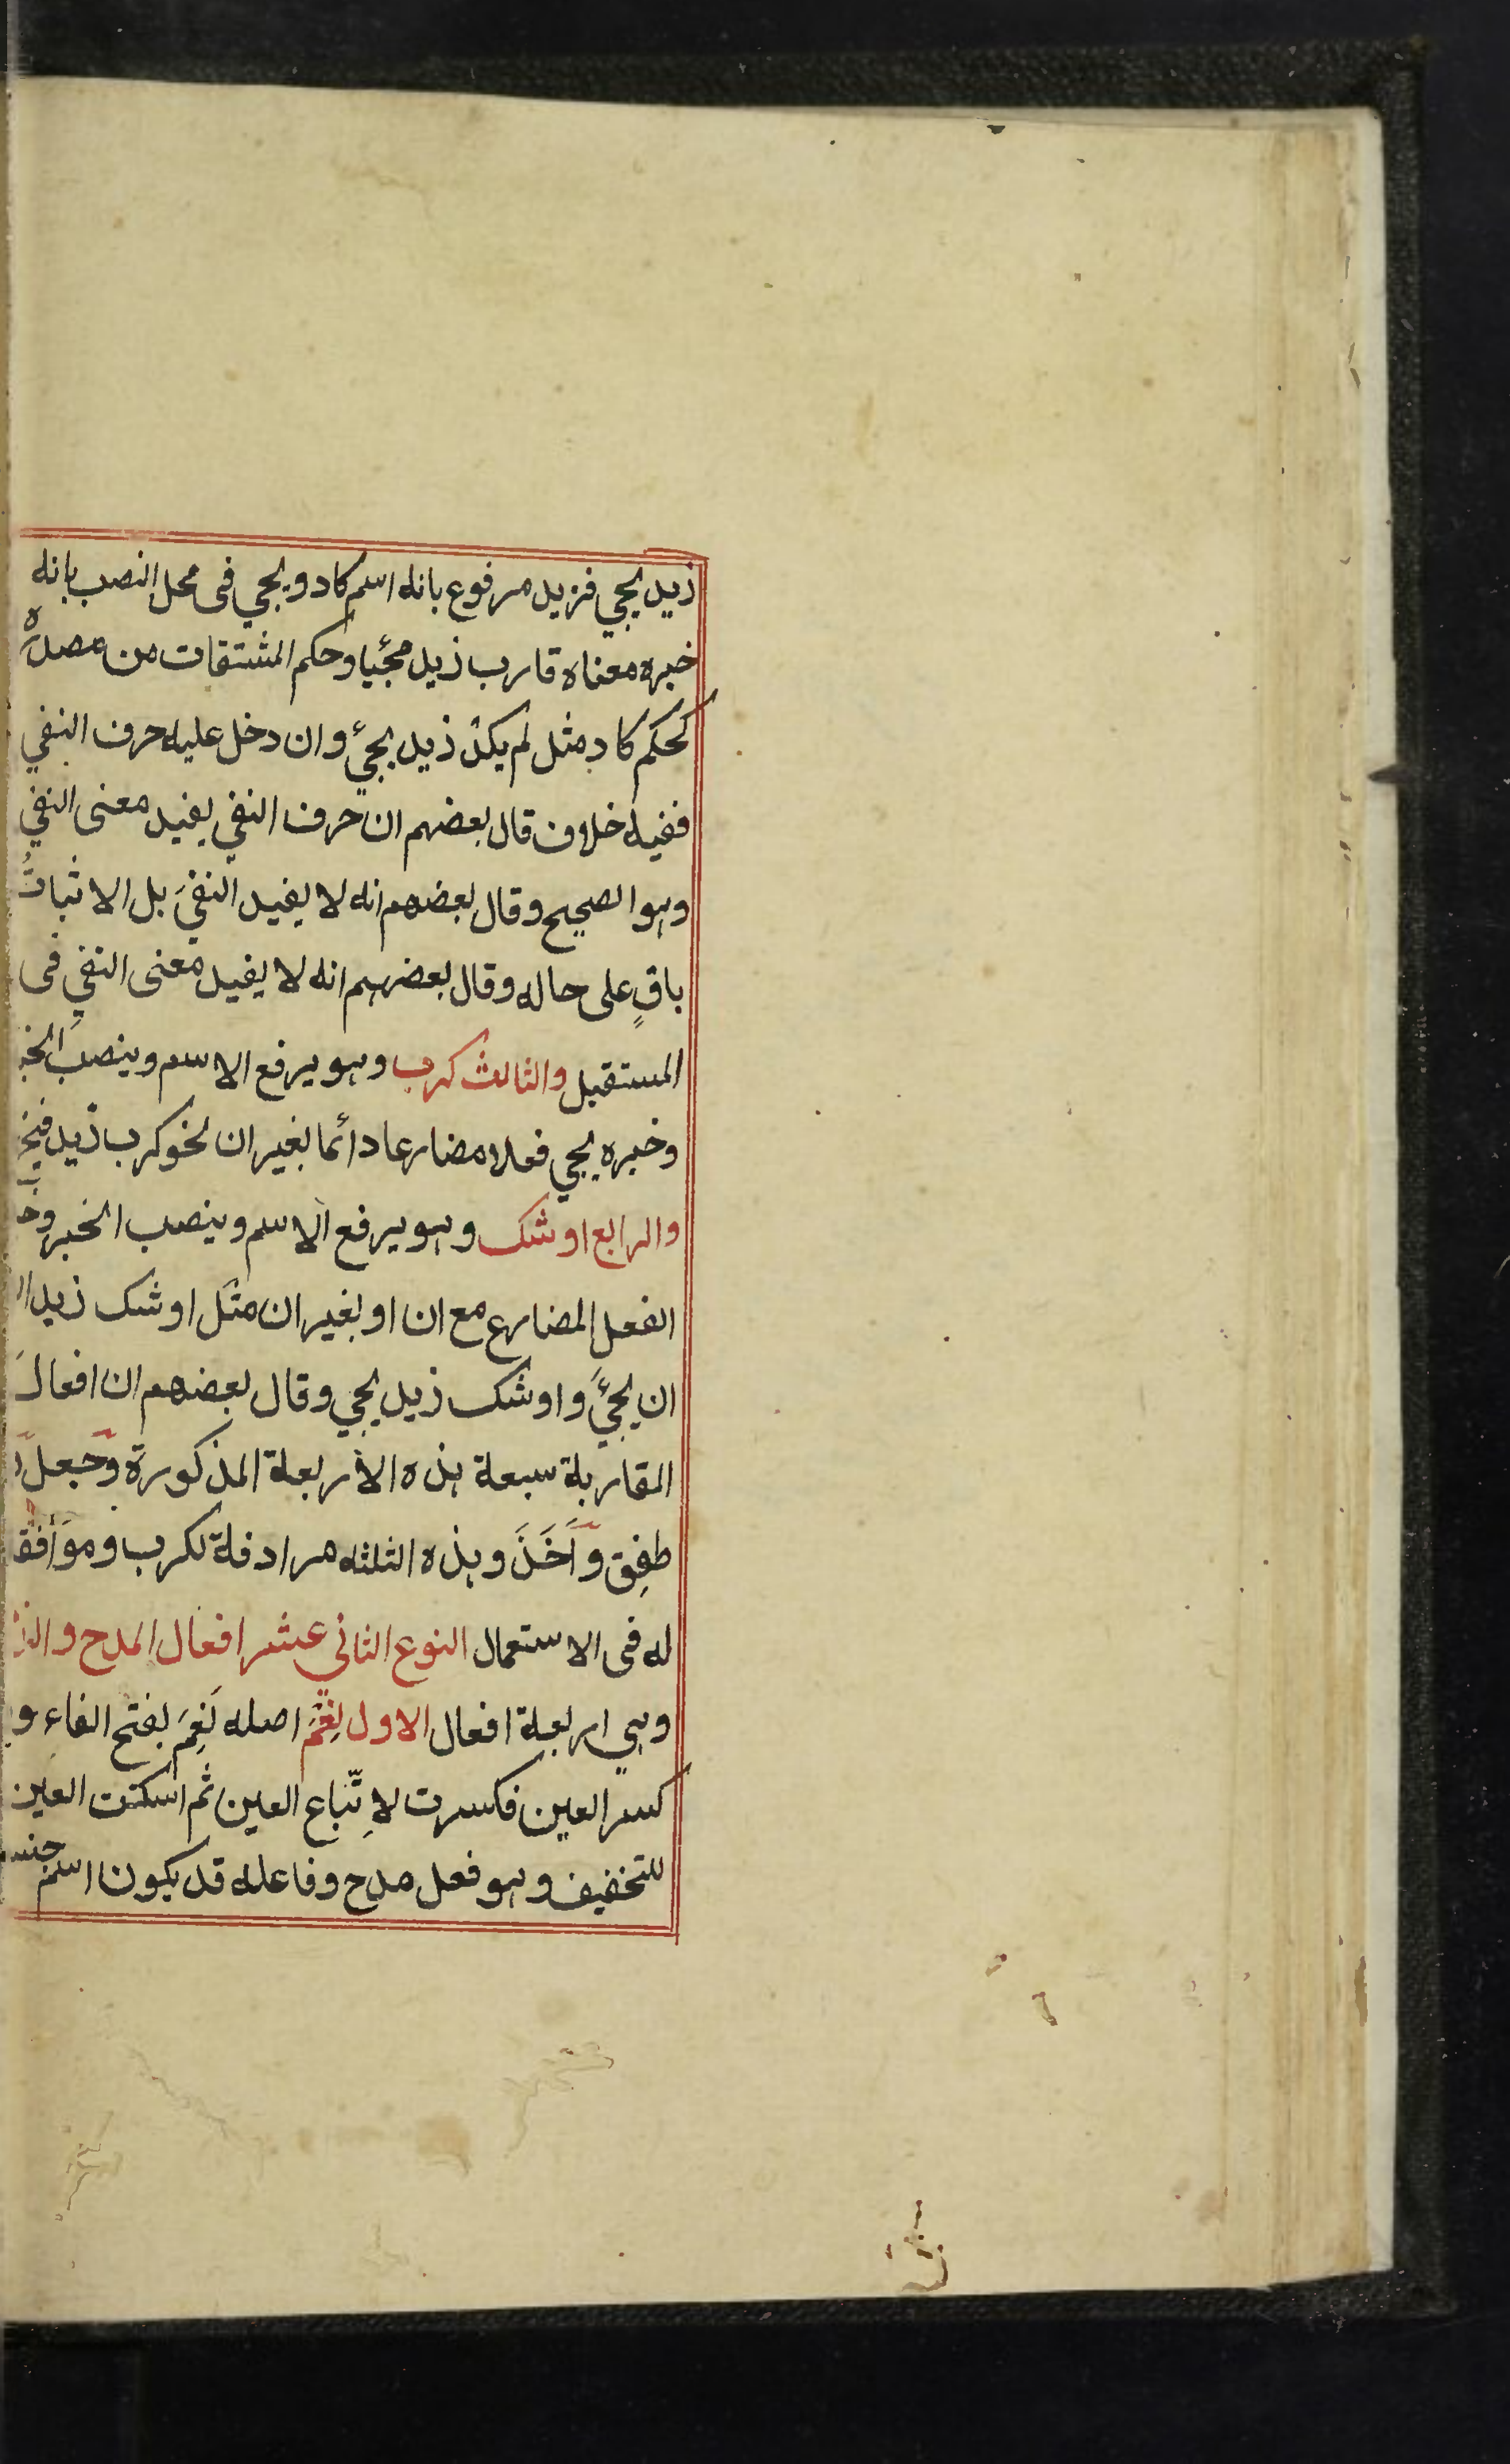 زيد يجي فزيد مرفوع بانه اسم كاد ويجي فى محل النصب بانه
خبره معناه قارب زيد مجئيا وحكم المشتقات من مصدره
كحكم كاد مثل لم يكد زيد يجئ وان دخل عليه حرف النفي
ففيه خلاف قال بعضهم ان حرف النفي يفيد معنى النفي
وهو الصحيح وقال بعضهم انه لا يفيد النفيَ بل الاثباتُ
باقٍ على حاله وقال بعضهم انه لا يفيد معنى النفي فى
المستقبل والثالث كرب وهو يرفع الاسم وينصب الخبر
وخبره يجي فعلا مضارعا دائما بغير ان نحو كرب زيد يخرج
والرابع اوشك وهو يرفع الاسم وينصب الخبر
الفعل المضارع مع ان او بغير ان مثل اوشك زيد
ان يجئَ واوشك زيد يجي وقال بعضهم ان افعالَ
المقاربة سبعة هذه الأربعة المذكورة وجعل
طفِق وَاَخَذَ وهذه الثلثه مرادفة لكرب وموافقة
له فى الاستعمال النوع الثاني عشر افعال المدح والذم
وهي اربعة افعال الاول نِعْمَ اصله نَعِمَ بفتح الفاء و
كسر العين فكسرت لاِتّباع العين ثم اسكنت العين
للتخفيف وهو فعل مدح وفاعله قد يكون اسم جنس